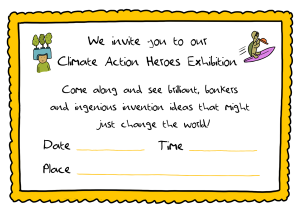 We invite you to our
Climate Action Heroes Exhibition
Come along and see brilliant, bonkers
and ingenious invention ideas that might
just change the world!
Date Time
Place